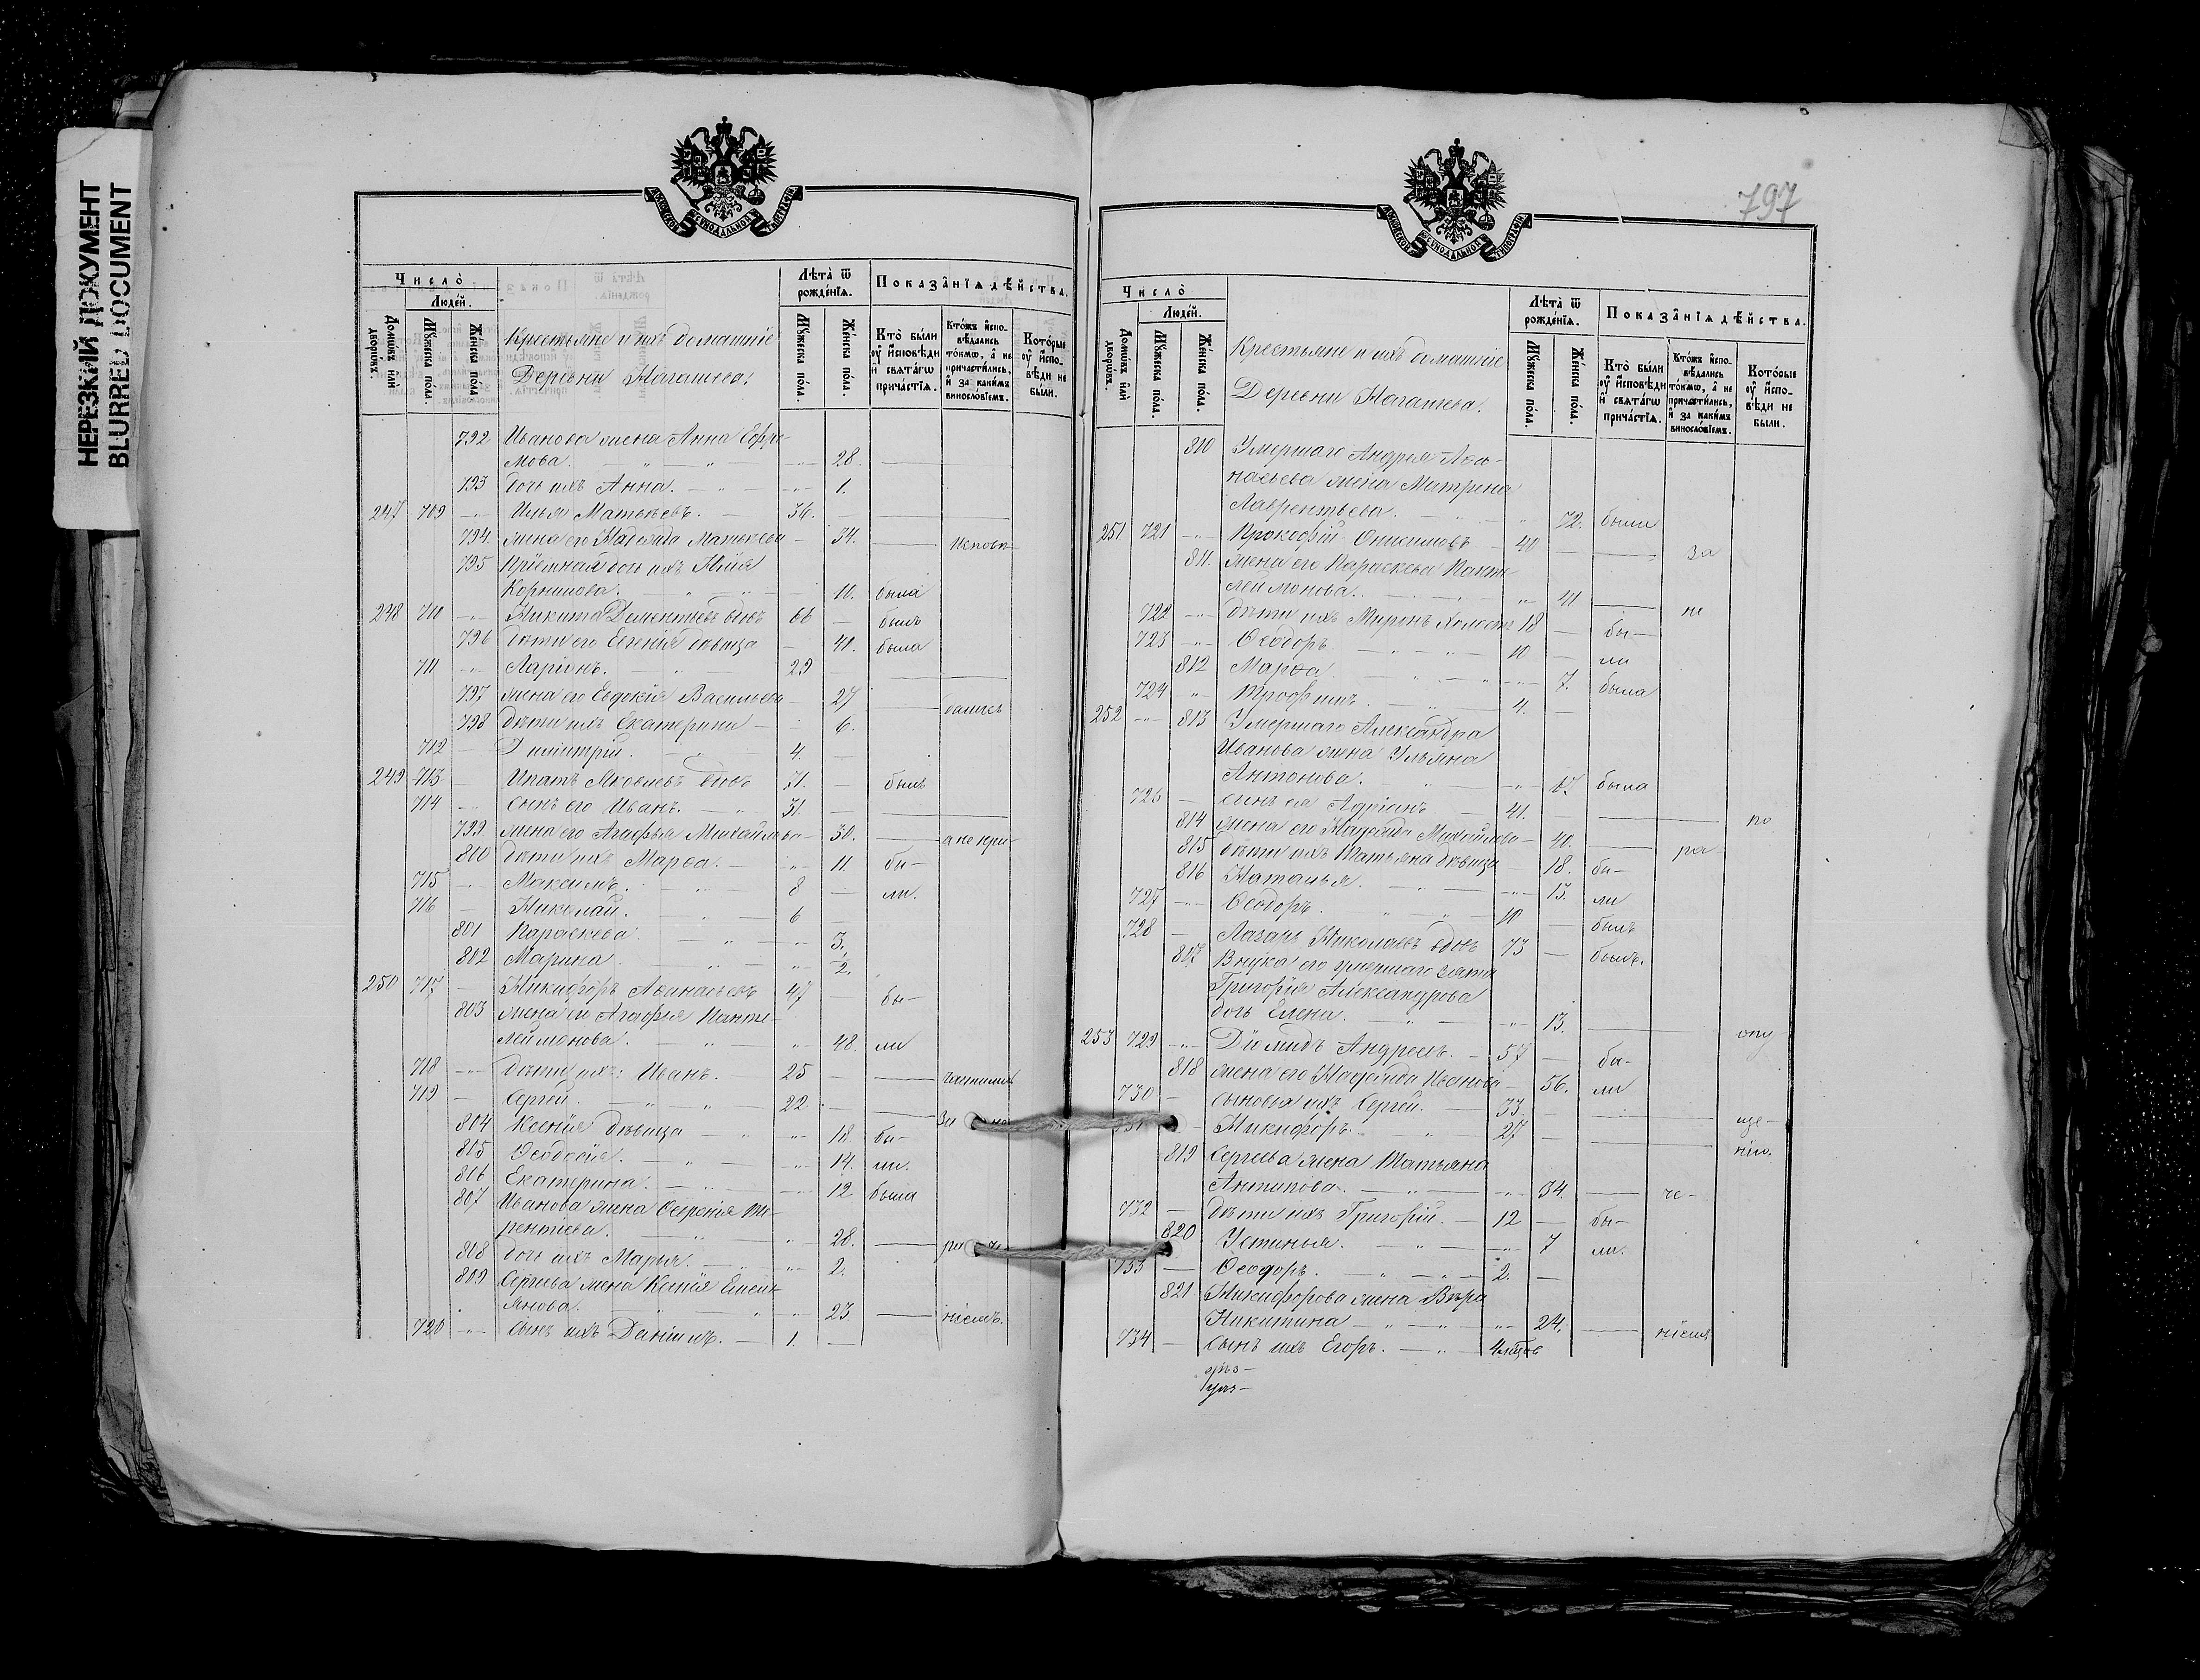 НЕРЕЗКИЙ ДОКУМЕНТ
BLURRED DOCUMENT
МОСКОВСКОЙ СУНОДАЛЬНОЙ ТИПОГРАФІИ
Число̀
Люде́й.
Домѡ́въ и҆лѝ дворѡ́въ.
Мꙋ́жеска по́ла.
Же́нска по́ла.
Крестьяне и ихъ домашніе
Деревни
Лѣта̀ ѿ рожде́нїѧ.
Мꙋ́жеска по́ла.
Же́нска по́ла.
Показа̑нїѧ дѣ́йства.
Кто̀ бы́ли оу҆ и҆сповѣ́ди и҆ свѧта́гѡ прича́стїѧ.
Кто́жъ и҆спо-вѣ́дались то́кмѡ, а҆ не причасти́лись, и҆ за каки́мъ виносло́вїемъ.
Кото́рые оу҆ и҆спо-вѣ́ди не бы́ли.
792 Иванова жена Анна Ефре-
мова. — „ — „ — 28. —
793 дочь ихъ Анна. — „ — 1.
247 709 — Илья Матвѣевъ. — 36. —
794 жена его Надежда Матвѣева — 34. — исповѣ-
795 Пріемная дочь ихъ
Корнилова. — „ — 10. была
248 710 — Никита Дементьевъ вдовъ 66 — былъ
796 дѣти его Евгенія дѣвица — 40. была
711 — Ларіонъ. — „ — 29 —
797 жена его Евдокія Васильева — 27 — дались
798 дѣти ихъ Екатерина — 6.
712 — Димитрій. — „ — 4. —
249 713 — Ипатъ Яковлевъ вдовъ 71. — былъ
714 — сынъ его Иванъ. — „ 31. —
799 жена его Агафья Михайлова — 30. — а не при-
800 дѣти ихъ Марѳа. — „ 11. бы-
715 — Максимъ. — „ — 8 — ли.
716 — Николай. — „ — 6 —
801 Параскева. — „ — 3.
802 Марина. — „ — 2.
250 717 — Никифоръ Аѳанасьевъ 47 — бы-
803 жена его Агафья Панте-
леймонова. — „ — 48. ли
718 — дѣти ихъ: Иванъ. 25 — частились
719 — Сергей. — „ „ 22 — за
804 Ксенія дѣвица — „ — 18. бы-
805 Ѳеодосія. — „ — 14. ли.
806 Екатерина. — „ — 12 была
807 Иванова жена Те-
рентіева. — „ — 28. —
808 дочь ихъ Марья. — „ — 2.
809 Сергѣева жена Ксенія Емель-
янова. — „ — 23 — ніемъ.
720 — сынъ ихъ Даніилъ. — 1. —
797
МОСКОВСКОЙ СУНОДАЛЬНОЙ ТИПОГРАФІИ
Число̀
Люде́й.
Домѡ́въ и҆лѝ дворѡ́въ.
Мꙋ́жеска по́ла.
Же́нска по́ла.
Крестьяне и ихъ домашніе
Деревни
Лѣта̀ ѿ рожде́нїѧ.
Мꙋ́жеска по́ла.
Же́нска по́ла.
Показа̑нїѧ дѣ́йства.
Кто̀ бы́ли оу҆ и҆сповѣ́ди и҆ свѧта́гѡ прича́стїѧ.
Кто́жъ и҆спо-вѣ́дались то́кмѡ, а҆ не причасти́лись, и҆ за каки́мъ виносло́вїемъ.
Кото́рые оу҆ и҆спо-вѣ́ди не бы́ли.
810 Умершаго Андрея Аѳа-
насьева жена Матрена
Лаврентьева. — „ 72. была
251 721 — Прокофій Онисимовъ — 40 — за
811. жена его Параскева Панте-
леймонова. — „ 41 — не
722 — дѣти ихъ Миронъ холостъ 18 — бы-
723 — Ѳеодоръ. — „ — „ — 10 — ли
812 Марѳа. — „ — 7. была
724 „ Трофимъ. — „ — 4. —
252 — 813 Умершаго Александра
Иванова жена Ульяна
Антонова. — „ — 67. была
726 — сынъ ея Адріанъ — 41. — по
814 жена его Надежда Михайлова — 40. — ра-
815 дѣти ихъ Татьяна дѣвица — 18. бы-
816 Наталья. — „ — 13. ли
727 — Ѳеодоръ. „ — „ — 10 — былъ
728 — Лазарь Николаевъ вдовъ 73 — былъ.
817 Внука его умершаго зятя
Григорія Александрова
дочь Елена. — „ — 13. — опу
253 729 — Діомидъ Андреевъ. — 57 — бы-
818 жена его Надежда Иванова — 56. ли
730 — сыновья ихъ Сергей. — 33. — ще-
731 — Никифоръ. — „ 27 — нію.
819 Сергѣева жена Татьяна
Антипова. — „ — 34. — че-
732 — дѣти ихъ Григорій. — 12 — бы-
820 Устинья. — „ — 7 ли.
733 — Ѳеодоръ. — „ — „ — 2. —
821 Никифорова жена Вѣра
Никитина — „ — „ 24. — ніемъ
734 — сынъ ихъ Егоръ. — „ —